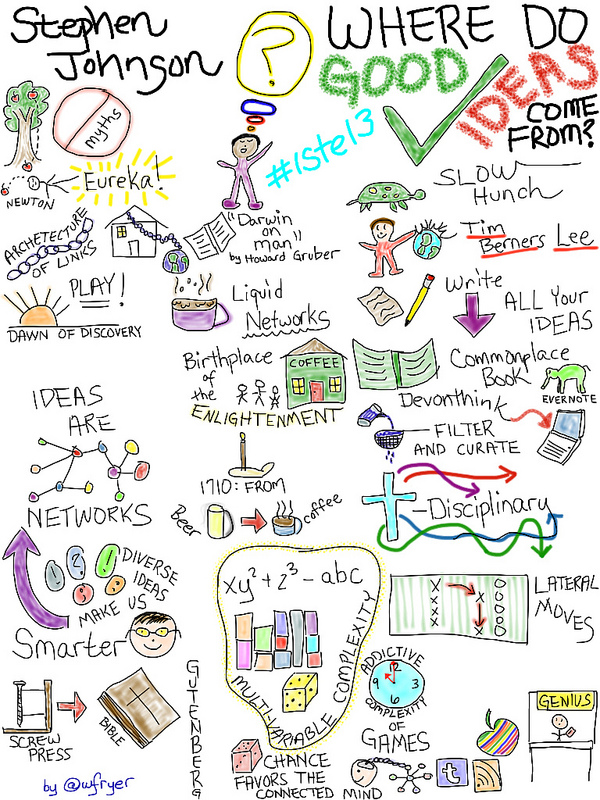 Stephen
Johnson
?
WHERE DO
GOOD
IDEAS
COME
FROM?
myths
#iste13
Eureka!
NEWTON
SLOW
Hunch
ARCHETECTURE
OF LINKS
"Darwin
on
man"
by Howard Gruber
Tim
Berners Lee
PLAY!
DAWN OF DISCOVERY
Liquid
Networks
Write
ALL YOUR
IDEAS
Birthplace
of
the
ENLIGHTENMENT
COFFEE
Commonplace
Book
EVERNOTE
Devonthink
FILTER
AND CURATE
IDEAS
ARE
NETWORKS
1710: FROM
Beer
coffee
-Disciplinary
! ? !
; :
DIVERSE
IDEAS
MAKE US
Smarter
xy² + z³ - abc
MULTI-VARIABLE COMPLEXITY
X X X X
X X
O O O O O
LATERAL
MOVES
SCREW
PRESS
BIBLE
GUTENBERG
ADDICTIVE
12
9 3
6
COMPLEXITY
OF
GAMES
GENIUS
CHANCE
FAVORS THE
CONNECTED MIND
t
by @wfryer